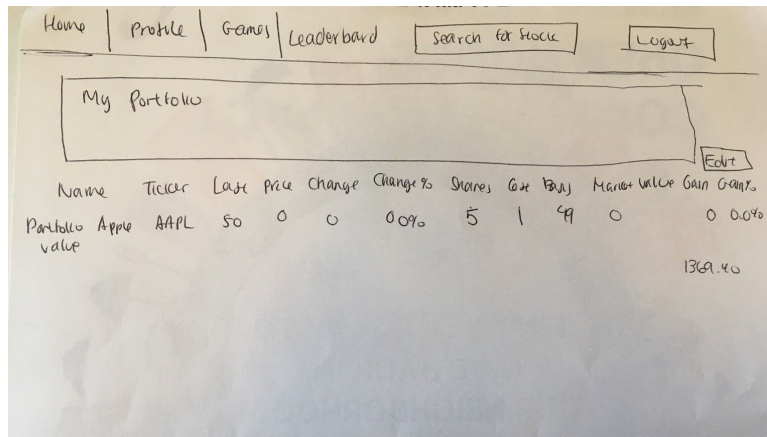 Home Profile Games Leaderbard Search for Stock Logout
My Portfolio
Edit
Name Ticker Last Price Change Change % Shares Cost Basis Market Value Gain Gain%
Portfolio Apple AAPL 50 0 0 0.0% 5 1 49 0 0 0.0%
value
1369.40